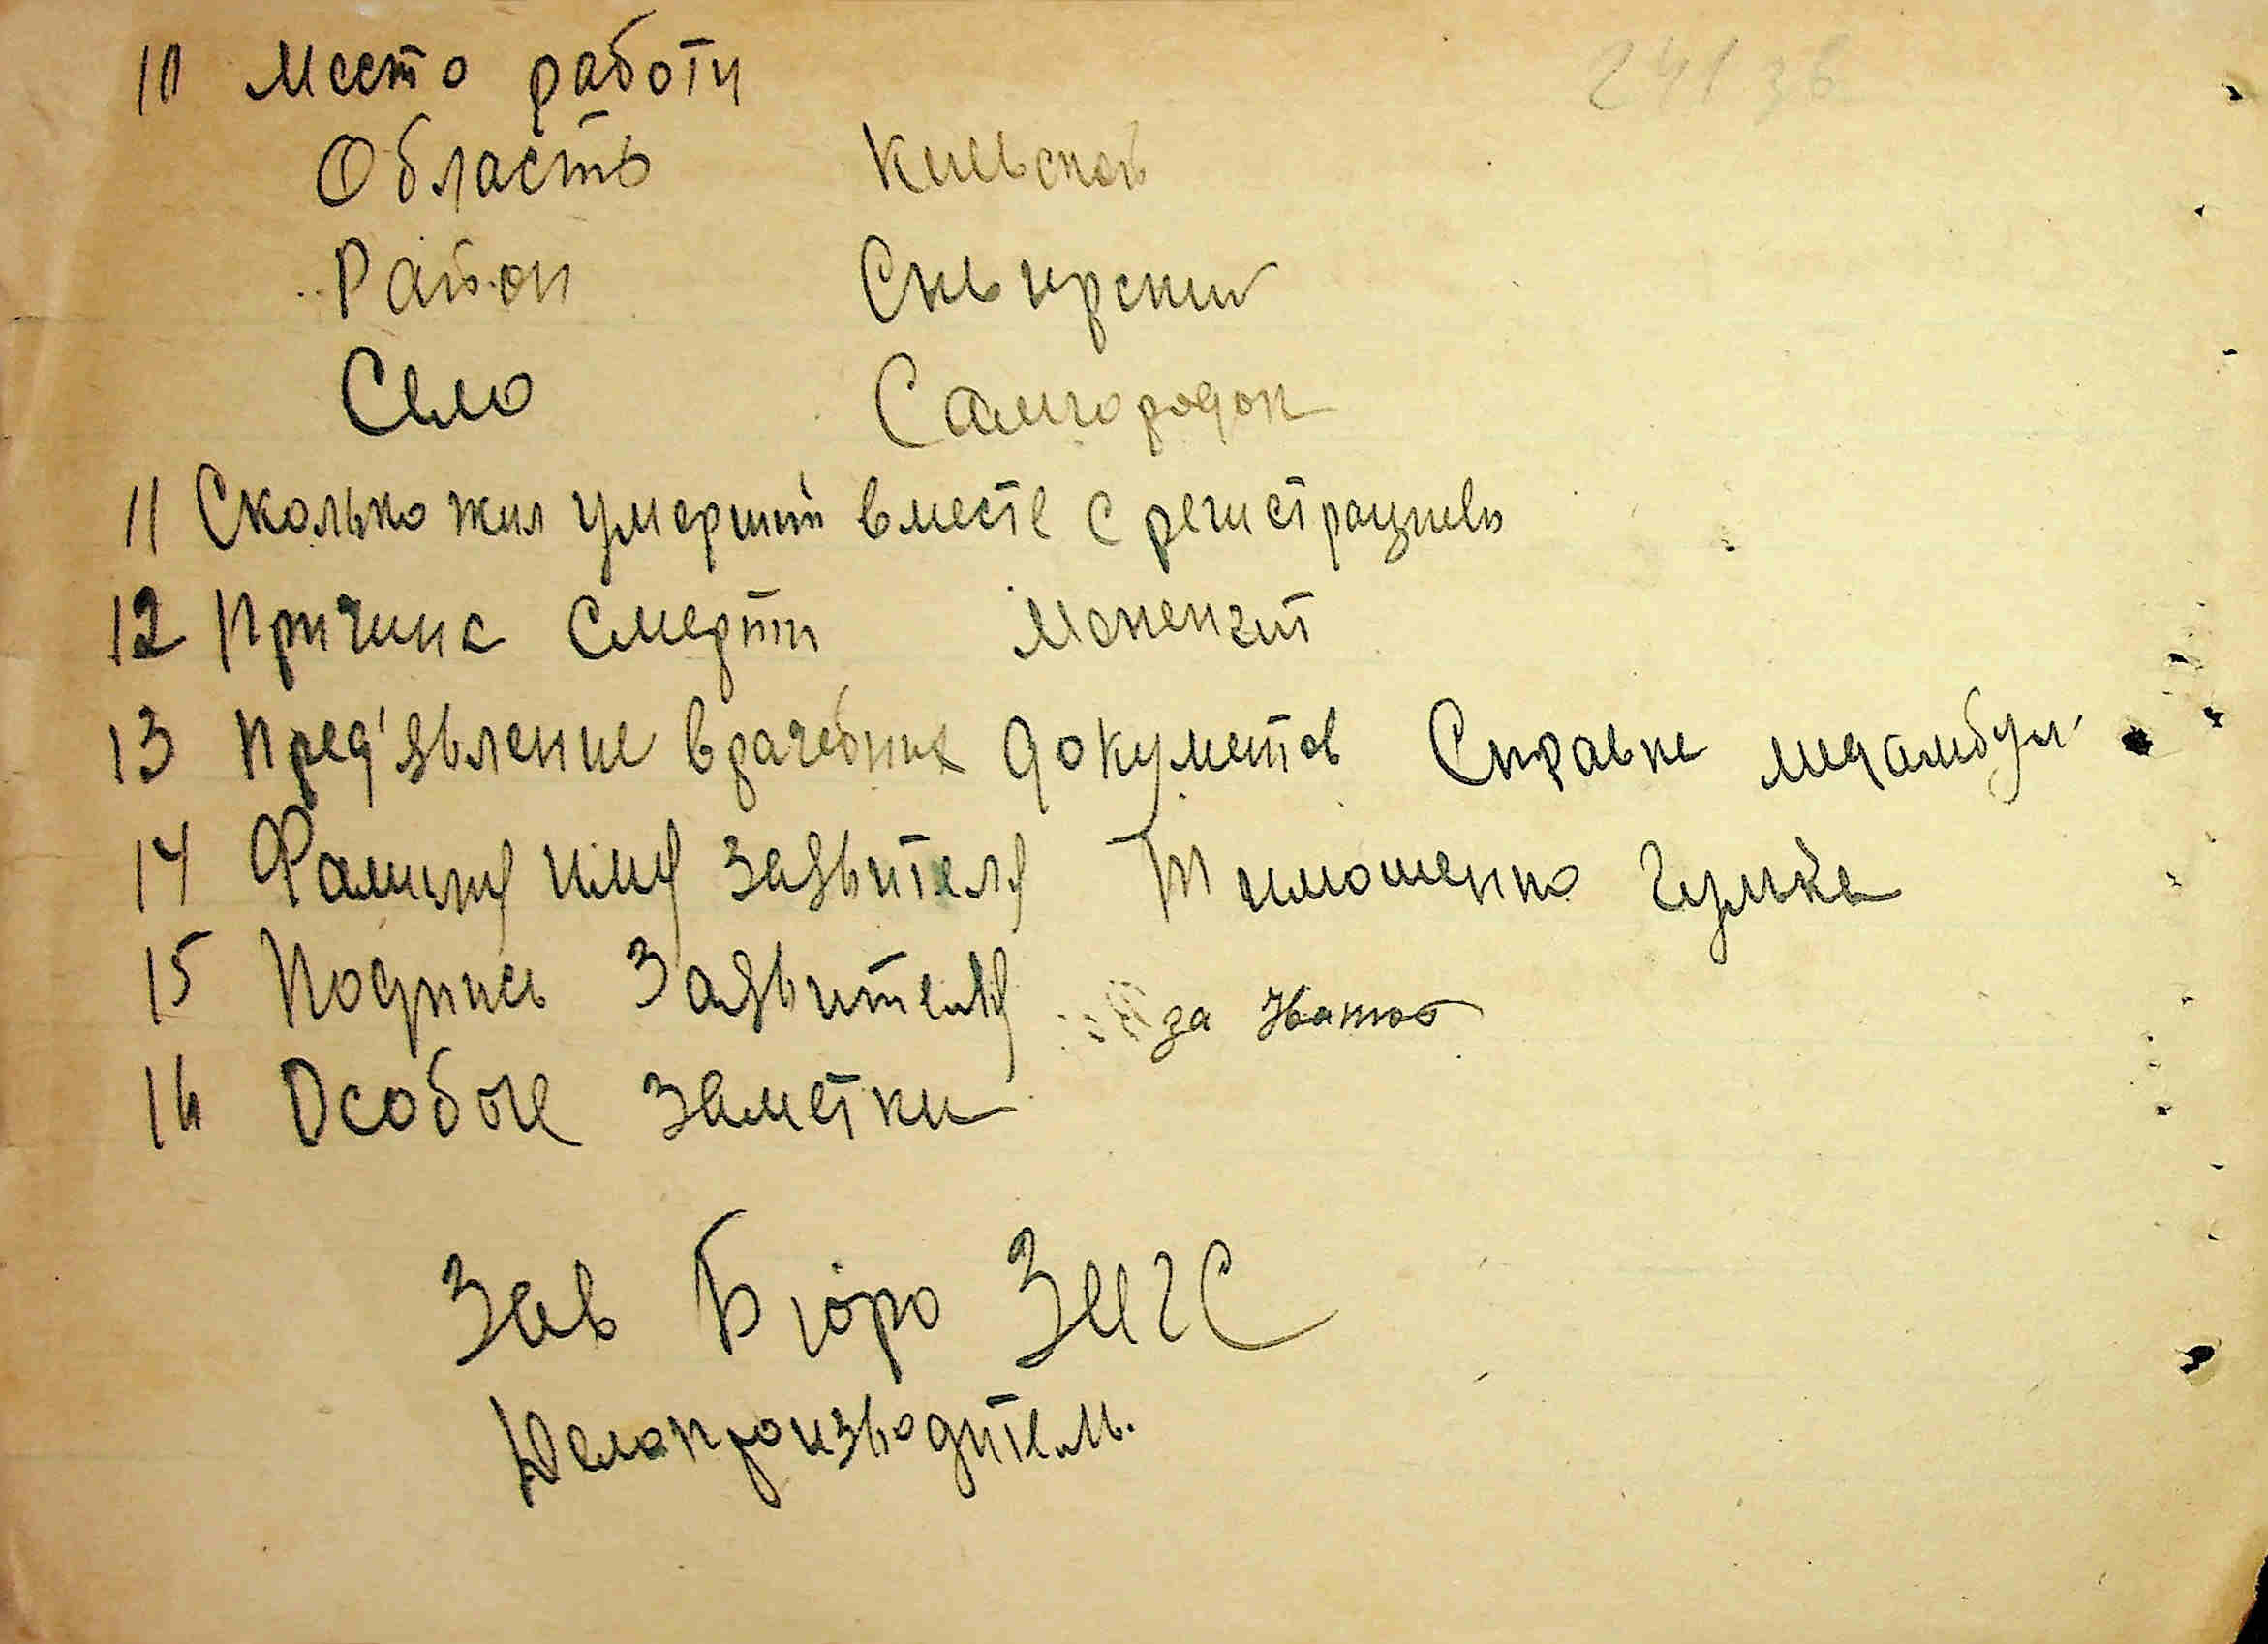 10 Место работи
Область Киевской
Район Сквирский
Село Самгородок
11 Сколько жил умерший вместе с регистрацией
12 Причина смерти Мененгит
13 Пред'явление врачебних документов Справка медамбул.
14 Фамилия имя заявителя Тимошенко
15 Подпись Заявителя за
16 Особые заметки
Зав Бюро ЗАГС
Делопроизводитель.